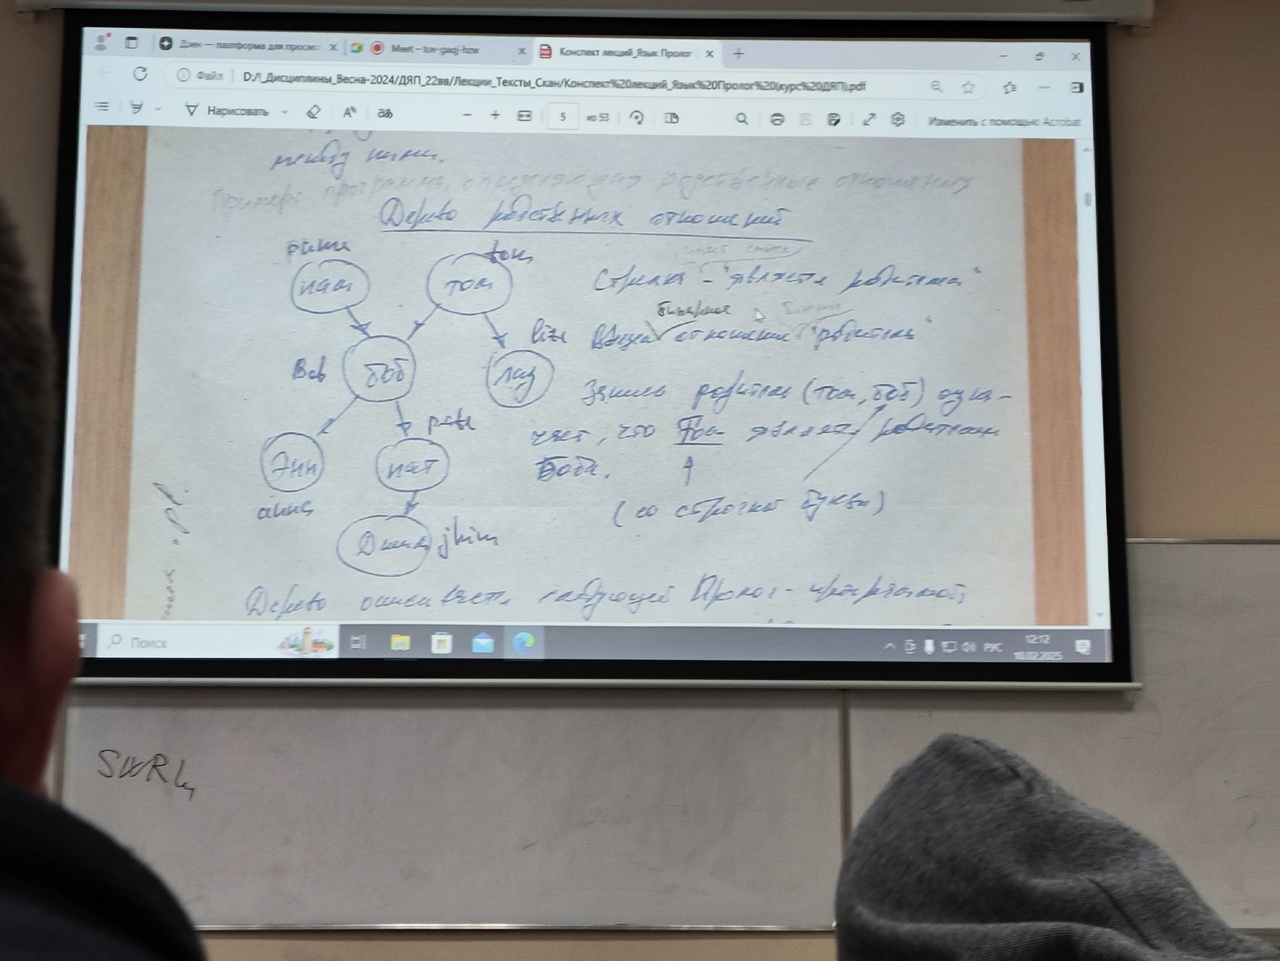 Дзен — платформа для просмо
Meet – tov-gaqj-hzw
Конспект лекций_Язык Пролог
Файл
D:/!_Дисциплины_Весна-2024/ДЯП_22вв/Лекции_Тексты_Скан/Конспект%20лекций_Язык%20Пролог%20(курс%20ДЯП).pdf
Нарисовать
аあ
5
из 53
Изменить с помощью Acrobat
между ними.
Пример: программа, определяющая родственные отношения
Дерево родственных отношений
пам
том
tom
Стрелка – "является родителем"
бинарное
liz
отношение "родитель"
Bob
боб
лиз
Запись родитель (том, боб) озна-
чает, что Том является родителем
Боба.
энн
пат
(со строчной буквы)
jhim
Дерево описывается следующей Пролог-программой;
Поиск
РУС
12:12
10.02.2025
SWRL